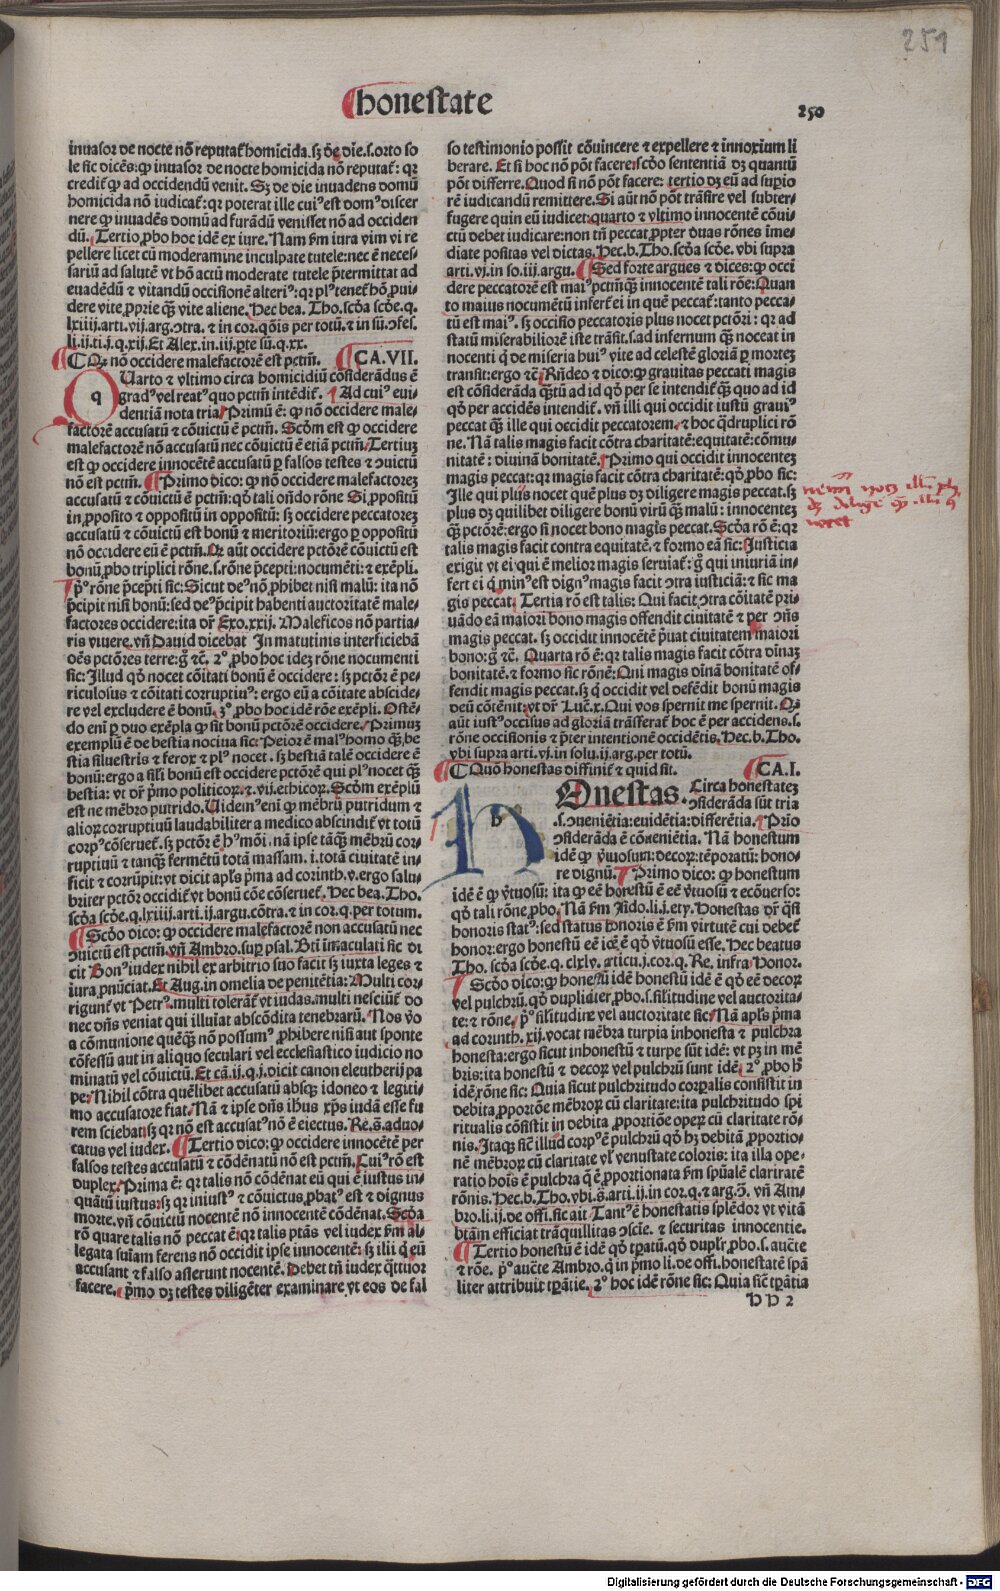 251
honestate
250
inuasor de nocte nō reputat᷑ homicida. sꝫ de die. s. orto so
le sic dicēs: ꝙ inuasor de nocte homicida nō reputat᷑: qꝛ
credit᷑ ꝙ ad occidendū venit. Sꝫ de die inuadens domū
homicida nō iudicat᷑: qꝛ poterat ille cuiꝰ est domꝰ discer
nere ꝙ inuadēs domū ad furādū venisset nō ad occiden
dū. Tertio ꝓbo hoc idē ex iure. Nam ẜm iura vim vi re
pellere licet cū moderamine inculpate tutele: nec ē neces⸗
sariū ad salutē vt hō actū moderate tutele p̄termittat ad
euadēdū ⁊ vitandū occisionē alteriꝰ: qꝛ plꝰ tenet᷑ hō ꝓui⸗
dere vite ꝓprie qꝫ vite aliene. Hec bea. Tho. scd̓a scd̓e. q.
lxiiij. arti. vij. arg. ↄtra. ⁊ in coꝛ. q̄onis per totū. ⁊ in sū. ↄfes.
li. ij. ti. j. q. xij. Et Alex. in iij. ꝑte sū. q. xx.
Qꝛ nō occidere malefactorē est pctm̄. CA. VII.
q Uarto ⁊ vltimo circa homicidiū cōsiderādus ē
gradꝰ vel reatꝰ quo pctm̄ intēdit᷑. Ad cuiꝰ eui⸗
dentiā nota tria. Primū ē: ꝙ nō occidere male⸗
factorē accusatū ⁊ cōuictū ē pctm̄. Scd̓m est ꝙ occidere
malefactorē nō accusatū nec cōuictū ē etiā pctm̄. Tertiuꝫ
est ꝙ occidere innocētē accusatū ꝑ falsos testes ⁊ ↄuictū
nō est pctm̄. Primo dico: ꝙ nō occidere malefactoreꝫ
accusatū ⁊ cōuictū ē pctm̄: qd̓ tali on̄do rōne Si ꝓpositū
in ꝓposito ⁊ oppositū in oppositū: sꝫ occidere peccatoreꝫ
accusatū ⁊ cōuictū est bonū ⁊ meritoriū: ergo ꝑ oppositū
nō occidere eū ē pctm̄. Qꝛ aūt occidere pctōrē cōuictū est
bonū ꝓbo triplici rōne. s. rōne p̄cepti: nocumēti: ⁊ exēpli.
p̄ꝰ rōne p̄cepti sic: Sicut deꝰ nō ꝓhibet nisi malū: ita nō
p̄cipit nisi bonū: sed deꝰ p̄cipit habenti auctoritatē male⸗
factores occidere: ita dr̄ Exo. xxij. Maleficos nō partia⸗
ris viuere. vn̄ Dauid dicebat In matutinis interficiebā
oēs pctōres terre: g̊ ⁊c̄. 2ꝰ ꝓbo hoc ideꝫ rōne nocumenti
sic: Illud qd̓ nocet cōitati bonū ē occidere: sꝫ pctōr ē pe⸗
riculosus ⁊ cōitati corruptiuꝰ: ergo eū a cōitate abscide⸗
re vel excludere ē bonū. 3ꝰ ꝓbo hoc idē rōe exēpli. Ostē⸗
do eni ꝑ duo exēpla ꝙ sit bonū pctōrē occidere. Primuꝫ
exemplū ē de bestia nociua sic: Peior ē malꝰ homo qꝫ be
stia siluestris ⁊ ferox ⁊ plꝰ nocet. sꝫ bestiā talē occidere ē
bonū: ergo a sili bonū est occidere pctōrē qui plꝰ nocet qꝫ
bestia: vt dr̄ p̄mo politicoꝝ. ⁊ vij. ethicoꝝ. Scd̓m exēplū
est ne mēbro putrido. Uidemꝰ eni ꝙ mēbrū putridum ⁊
alioꝝ corruptiuū laudabiliter a medico abscindit᷑ vt totū
corpꝰ cōseruet᷑. sꝫ pctōr ē hꝰmōi. nā ipse tāqꝫ mēbrū cor⸗
ruptiuū ⁊ tanqꝫ fermētū totā massam. i. totā ciuitatē in⸗
ficit ⁊ corrūpit: vt dicit apl̄s p̄ma ad corinth. v. ergo salu⸗
briter pctōr occidit᷑ vt bonū cōe cōseruet᷑. Hec bea. Tho.
scd̓a scd̓e. q. lxiiij. arti. ij. argu. cōtra. ⁊ in cor. q. per totum.
Scd̓o dico: ꝙ occidere malefactorē non accusatū nec
ↄuictū est pctm̄. vn̄ Ambro. suꝑ psal. Bti̅ im̄aculati sic di
cit Bonꝰ iudex nihil ex arbitrio suo facit sꝫ iuxta leges ⁊
iura ꝓnūciat. Et Aug. in omelia de penitētia: Multi cor⸗
rigunt᷑ vt Petrꝰ. multi tolerāt᷑ vt iudas. multi nesciūt᷑ do
nec dn̄s veniat qui illuīat abscōdita tenebrarū. Nos v̊o
a cōmunione quēqꝫ nō possumꝰ ꝓhibere nisi aut sponte
cōfessū aut in aliquo seculari vel ecclesiastico iudicio no
minatū vel cōuictū. Et cā. ij. q. j. dicit canon eleutherij pa
pe: Nihil cōtra quēlibet accusatū absqꝫ idoneo ⁊ legiti⸗
mo accusatore fiat. Nā ⁊ ipse dn̄s ihus xp̄s iudā esse fu
rem sciebat: sꝫ qꝛ nō est accusatꝰ nō ē eiectus. Re. s̄. aduo⸗
catus vel iudex. Tertio dico: ꝙ occidere innocētē per
falsos testes accusatū ⁊ cōdēnatū nō est pctm̄. Cuiꝰ rō est
duplex. Prima ē: qꝛ talis nō cōdēnat eū qui ē iustus in⸗
quātū iustus: sꝫ qꝛ iniustꝰ ⁊ cōuictus ꝓbatꝰ est ⁊ dignus
morte. vn̄ cōuictū nocentē nō innocentē cōdēnat. Scd̓a
rō quare talis nō peccat ē: qꝛ talis ptās vel iudex ẜm al⸗
legata suīam ferens nō occidit ipse innocentē: sꝫ illi q̇ eū
accusant ⁊ falso asserunt nocentē. Debet tn̄ iudex q̄ttuor
facere. p̄mo dꝫ testes diligēter examinare vt eos de fal
so testimonio possit cōuincere ⁊ expellere ⁊ innoxium li
berare. Et si hoc nō pōt facere: scd̓o sententiā dꝫ quantū
pōt differre. Quod si nō pōt facere: tertio dꝫ eū ad suꝑio
rē iudicandū remittere. Si aūt nō pōt trāsire vel subter⸗
fugere quin eū iudicet: quarto ⁊ vltimo innocentē cōui⸗
ctū debet iudicare: non tn̄ peccat ꝓpter duas rōnes ime⸗
diate positas vel dictas. Hec. b. Tho. scd̓a scd̓e. vbi supra
arti. vj. in so. iij. argu. Sed forte argues ⁊ dices: ꝙ occi
dere peccatorē est maiꝰ pctm̄qꝫ innocentē tali rōe: Quan
to maius nocumētū infert᷑ ei in quē peccat᷑: tanto pecca⸗
tū est maiꝰ. sꝫ occisio peccatoris plus nocet pctōri: qꝛ ad
statū miserabiliorē iste trāsit. s. ad infernum qꝫ noceat in
nocenti q̇ de miseria huiꝰ vite ad celestē gloriā ꝑ morteꝫ
transit: ergo ⁊c̄. Rn̄deo ⁊ dico: ꝙ grauitas peccati magis
est cōsiderāda qꝫtū ad id qd̓ per se intendit᷑ qꝫ quo ad id
qd̓ per accidēs intendit᷑. vn̄ illi qui occidit iustū grauiꝰ
peccat qꝫ ille qui occidit peccatorem. ⁊ hoc q̄druplici rō
ne. Nā talis magis facit cōtra charitatē: equitatē: cōmu⸗
nitatē: diuinā bonitatē. Primo qui occidit innocenteꝫ
magis peccat: qꝛ magis facit cōtra charitatē: qd̓ ꝓbo sic:
Ille qui plus nocet quē plus dꝫ diligere magis peccat. sꝫ
plus dꝫ quilibet diligere bonū virū qꝫ malū: innocenteꝫ
qꝫ pctōrē: ergo si nocet bono magis peccat. Scd̓a rō ē: qꝛ
talis magis facit contra equitatē. ⁊ formo eā sic: Justicia
exigit vt ei qui ē melior magis seruiat᷑: g̊ qui iniuriā in⸗
fert ei q̇ minꝰ est dignꝰ magis facit ↄtra iusticiā: ⁊ sic ma
gis peccat. Tertia rō est talis: Qui facit ↄtra cōitatē pri⸗
uādo eā maiori bono magis offendit ciuitatē ⁊ per ↄn̄s
magis peccat. sꝫ occidit innocētē p̄uat ciuitatem maiori
bono: g̊ ⁊c̄. Quarta rō ē: qꝛ talis magis facit cōtra diuināꝫ
bonitatē. ⁊ formo sic rōnē: Qui magis diuinā bonitatē of⸗
fendit magis peccat. sꝫ q̇ occidit vel defēdit bonū magis
deū cōtēnit: vt dr̄ Luc̄. x. Qui vos spernit me spernit. Qꝛ
aūt iustꝰ occisus ad gloriā trāsferat᷑ hoc ē per accidens. s.
rōne occisionis ⁊ p̄ter intentionē occidētis. Hec. b. Tho.
vbi supra arti. vj. in solu. ij. arg. per totū.
Quō honestas diffinit᷑ ⁊ quid sit. CA. I.
h Onestas. Circa honestateꝫ
ↄsiderāda sūt tria
.s. ↄueniētia: euidētia: differētia. Prīo
ↄsiderāda ē cōueniētia. Nā honestum
idē ꝙ v̓tuosum: decoꝝ: tēporatū: hono⸗
re dignū. Primo dico: ꝙ honestum
idē ē ꝙ v̓tuosū: ita ꝙ eē honestū ē eē v̓tuosū ⁊ ecōuerso:
qd̓ tali rōne ꝓbo. Nā ẜm Isido. li. j. ety. Honestas dr̄ q̄si
honoris statꝰ: sed status honoris ē ẜm virtutē cui debet᷑
honor: ergo honestū eē idē ē qd̓ v̓tuosū esse. Hec beatus
Tho. scd̓a scd̓e. q. clxlv. articu. j. cor. q. Re. infra Honor.
Scd̓o dico: ꝙ honestū idē honestū idē ē qd̓ eē decoꝝ
vel pulchrū. qd̓ duplicier ꝓbo. s. silitudine vel auctorita⸗
te: ⁊ rōne. p̄ꝰ silitudine vel auctoritate sic: Nā apl̄s p̄ma
ad corinth. xij. vocat mēbra turpia inhonesta ⁊ pulchra
honesta: ergo sicut inhonestū ⁊ turpe sūt idē: vt pꝫ in mē
bris: ita honestū ⁊ decoꝝ vel pulchrū sunt idē. 2ꝰ ꝓbo h̊
ideꝫ rōne sic: Quia sicut pulchritudo corꝑalis consistit in
debita ꝓportōe mēbroꝝ cū claritate: ita pulchritudo spi
ritualis cōsistit in debita ꝓportiōe opeꝝ cū claritate rō⸗
nis. Itaqꝫ sic̄ illud corpꝰ ē pulchrū qd̓ hꝫ debitā ꝓportio⸗
nē mēbroꝝ cū claritate vl̄ venustate coloris: ita illa ope⸗
ratio hoīs ē pulchra q̄ ē ꝓportionata ẜm spūalē clariratē
rōnis. Hec. b. Tho. vbi. s̄. arti. ij. in cor. q. ⁊ arg. ↄ̄. vn̄ Am⸗
bro. li. ij. de offi. sic ait Tantꝰ ē honestatis splēdor vt vitā
btām efficiat trāquillitas ↄscīe. ⁊ securitas innocentie.
Tertio honestū ē idē qd̓ tꝑatū. qd̓ duplr̄ ꝓbo. s. auc̄te
⁊ rōe. p̄ꝰ auc̄te Ambro. q̇ in p̄mo li. de offi. honestatē spā
liter attribuit tꝑātie. 2ꝰ hoc idē rōne sic: Quia sic̄ tꝑātia
H H 2
Digitalisierung gefördert durch die Deutsche Forschungsgemeinschaft - DFG